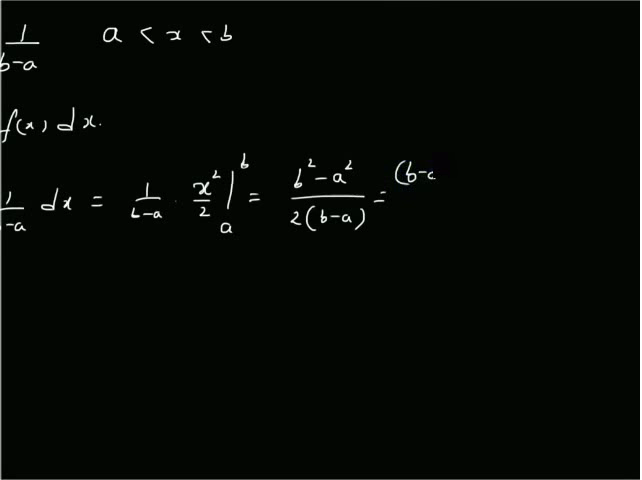 1/(b-a) a < x < b
f(x) dx.
1/(b-a) dx = 1/(b-a) · x²/2 |_a^b = (b² - a²)/(2(b-a)) = (b-a